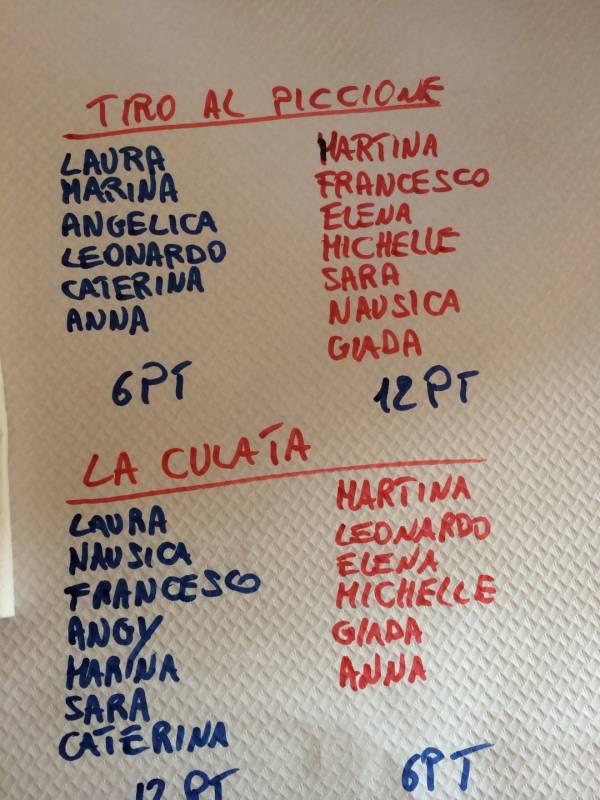 TIRO AL PICCIONE
LAURA
MARINA
ANGELICA
LEONARDO
CATERINA
ANNA
6PT
MARTINA
FRANCESCO
ELENA
MICHELLE
SARA
NAUSICA
GIADA
12 PT
LA CULATA
LAURA
NAUSICA
FRANCESCO
ANGY
MARINA
SARA
CATERINA
12 PT
MARTINA
LEONARDO
ELENA
MICHELLE
GIADA
ANNA
6PT